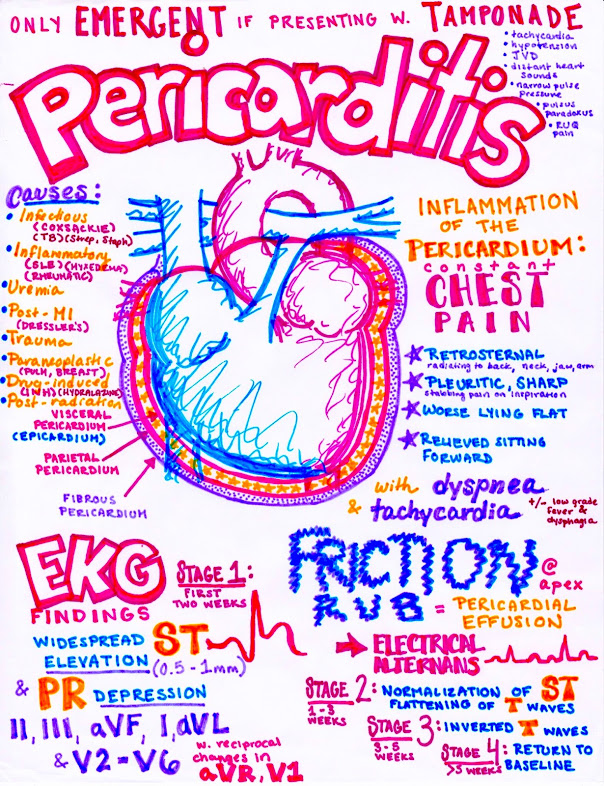 ONLY EMERGENT IF PRESENTING W. TAMPONADE
• tachycardia
• hypotension
• JVD
• distant heart
sounds
• narrow pulse
pressure
• pulsus
paradoxus
• RUQ
pain
Pericarditis
Causes:
• Infectious
(COXSACKIE)
(TB) (Strep, Staph)
• Inflammatory
(SLE) (MYXEDEMA)
(RHEUMATIC)
• Uremia
• Post-MI
(DRESSLER'S)
• Trauma
• Paraneoplastic
(PULM, BREAST)
• Drug-induced
(INH) (HYDRALAZINE)
• Post-radiation
VISCERAL
PERICARDIUM
(EPICARDIUM)
PARIETAL
PERICARDIUM
FIBROUS
PERICARDIUM
INFLAMMATION
OF THE
PERICARDIUM:
constant
CHEST
PAIN
RETROSTERNAL
radiating to back, neck, jaw, arm
PLEURITIC, SHARP
stabbing pain on inspiration
WORSE LYING FLAT
RELIEVED SITTING
FORWARD
with dyspnea
& tachycardia
+/- low grade
fever &
dysphagia
EKG
FINDINGS
STAGE 1:
FIRST
TWO WEEKS
WIDESPREAD
ELEVATION ST
(0.5-1mm)
& PR DEPRESSION
II, III, aVF, I, aVL
& V2-V6
w. reciprocal
changes in
aVR, V1
FRICTION
RUB
@
apex
= PERICARDIAL
EFFUSION
ELECTRICAL
ALTERNANS
STAGE 2: NORMALIZATION OF ST
1-3
WEEKS
FLATTENING OF T WAVES
STAGE 3: INVERTED T WAVES
3-5
WEEKS
STAGE 4: RETURN TO
>5 WEEKS
BASELINE